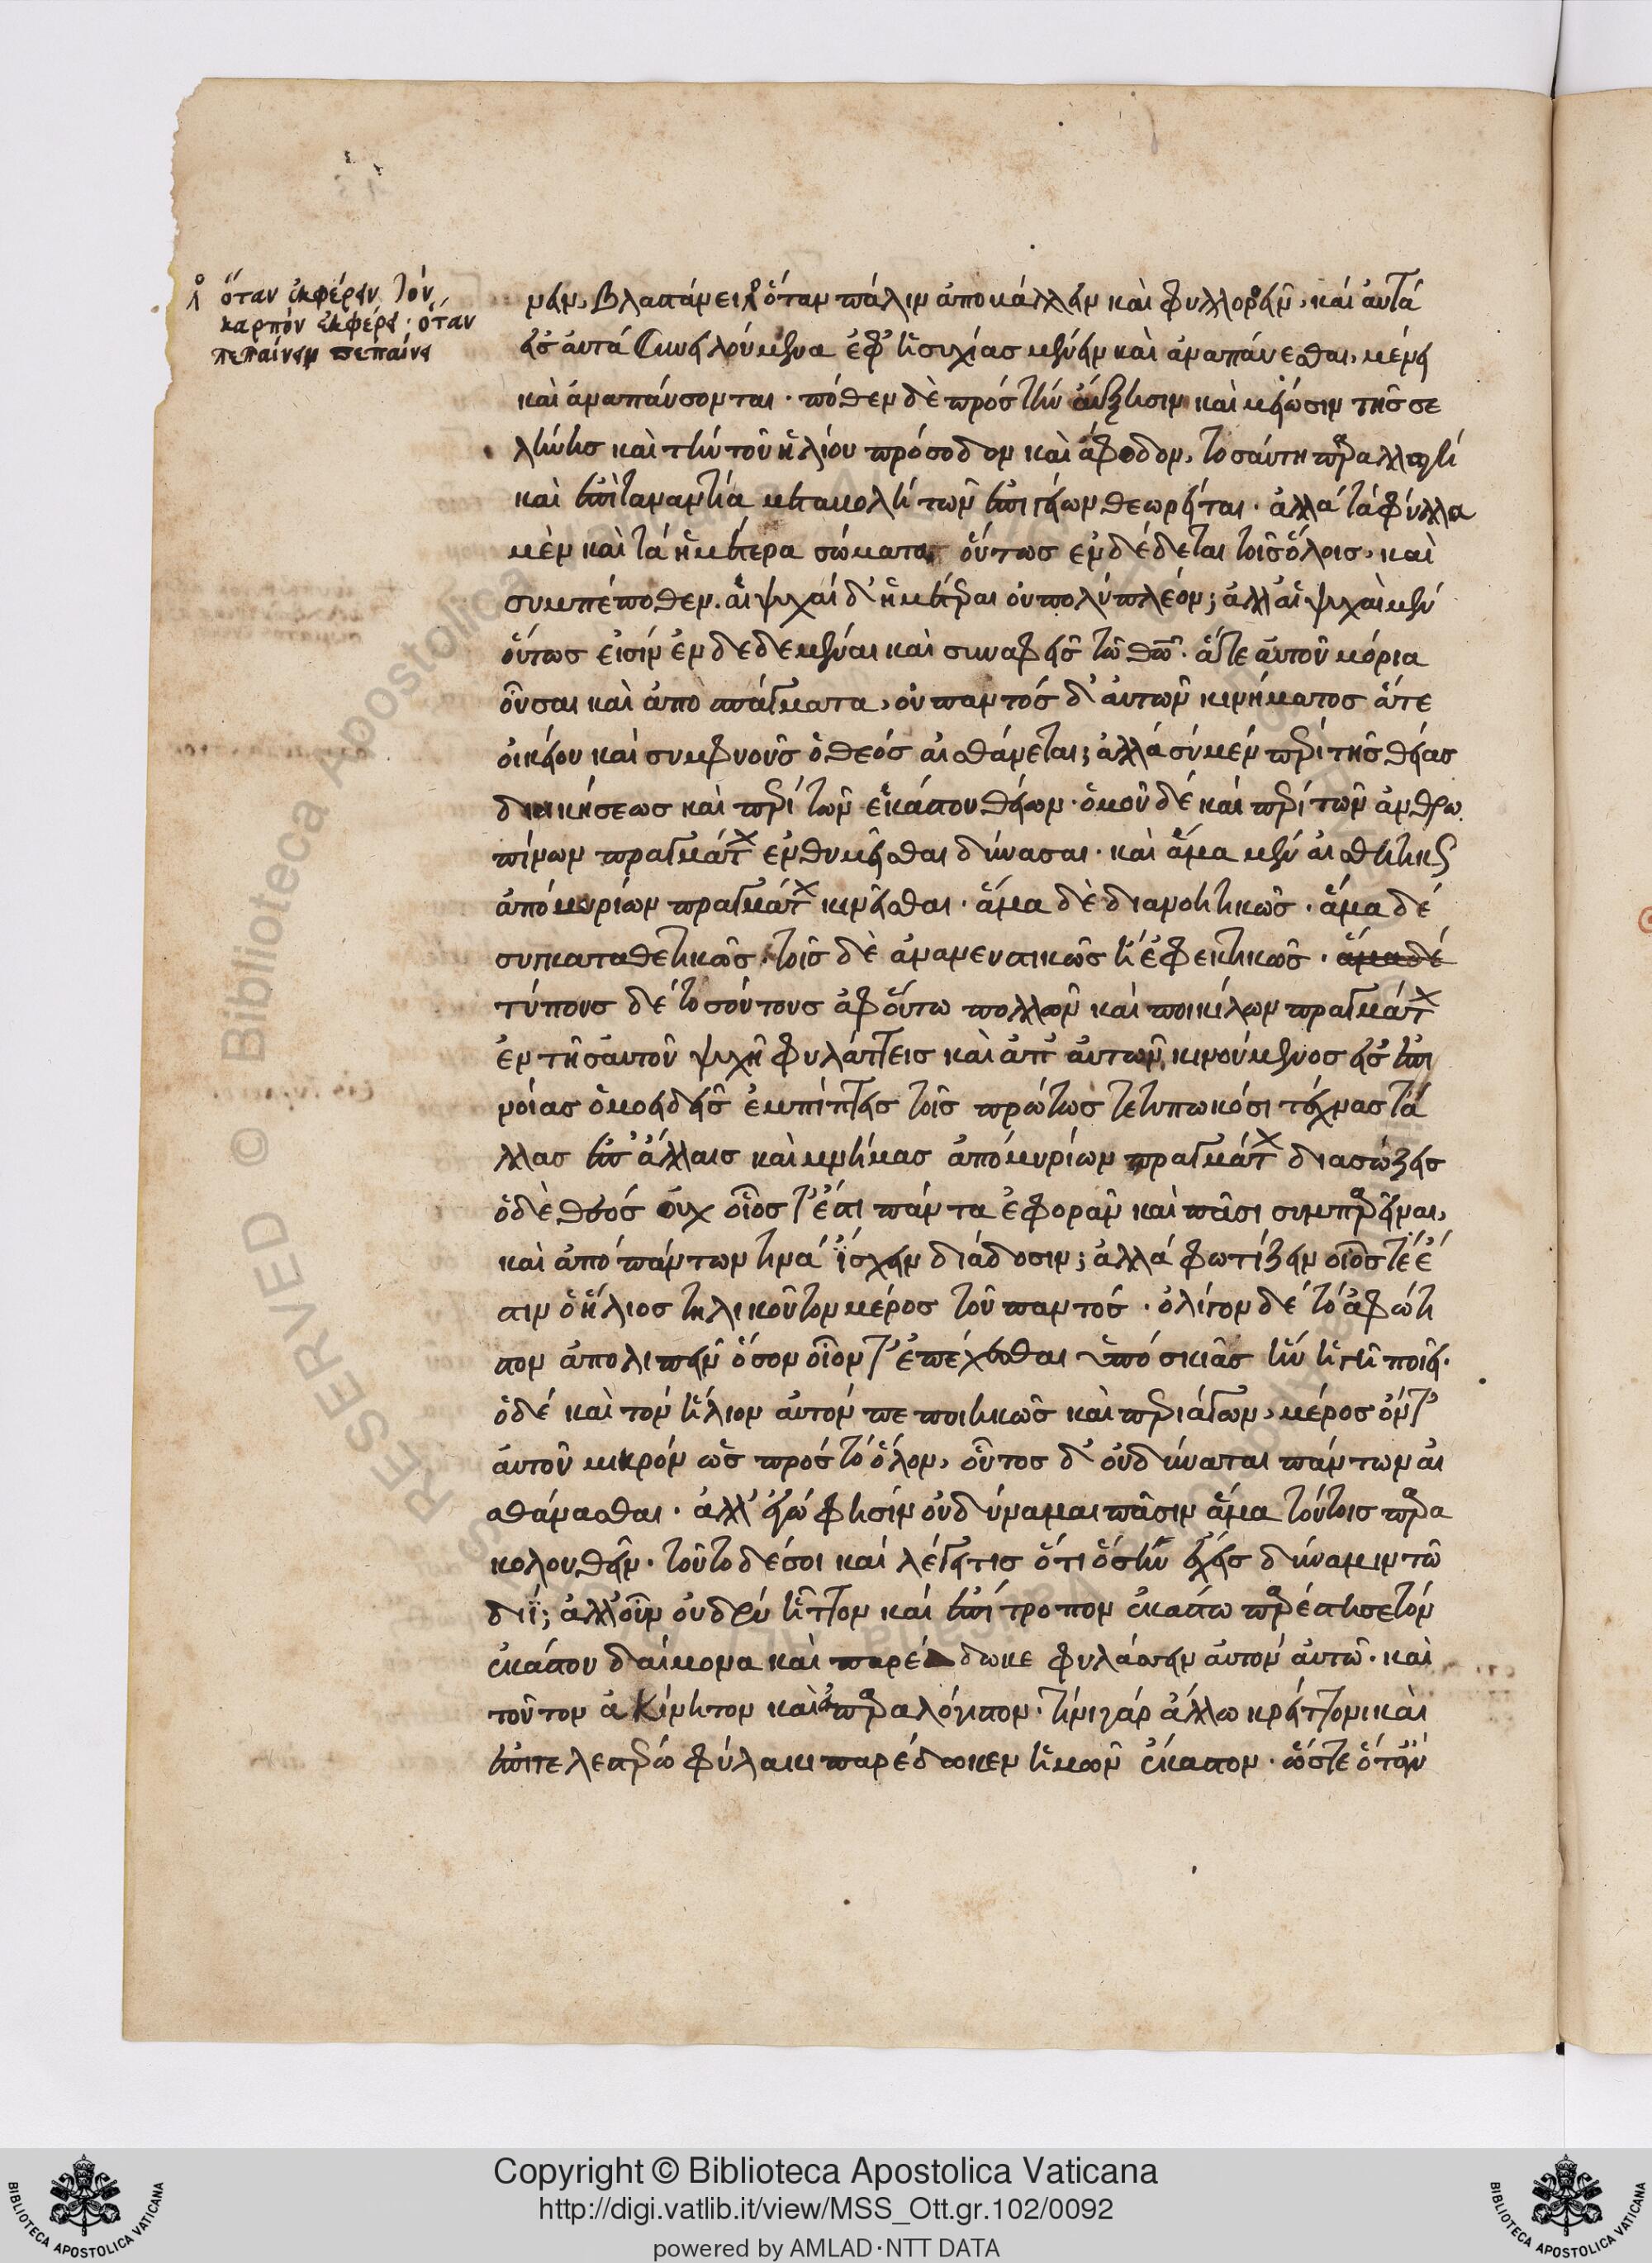 ὅταν ἐκφέρειν τὸν
καρπὸν ἐκφέρει· ὅταν
πεπαίνειν πεπαίνει
νειν, βλαστάνει ὅταν πάλιν ἀποβάλλειν καὶ φυλλοροεῖν, καὶ αὐτὰ
εἰς αὑτὰ συνειλούμενα ἐφ' ἡσυχίας μένειν καὶ ἀναπαύεσθαι, μένει
καὶ ἀναπαύσονται· πόθεν δὲ πρὸς τὴν αὔξησιν καὶ μείωσιν τῆς σε
λήνης καὶ τὴν τοῦ ἡλίου πρόσοδον καὶ ἄφοδον, τοσαύτη παραλλαγὴ
καὶ ἐπὶ τἀναντία μεταβολὴ τῶν ἐπιγείων θεωρεῖται· ἀλλὰ τὰ φύλλα
μὲν καὶ τὰ ἡμέτερα σώματα οὕτως ἐνδέδεται τοῖς ὅλοις, καὶ
συμπέπονθεν. αἱ ψυχαὶ δ' ἡμέτεραι οὐ πολὺ πλέον; ἀλλ' αἱ ψυχαὶ μὲν
οὕτως εἰσὶν ἐνδεδεμέναι καὶ συναφεῖς τῷ θεῷ· ἅτε αὐτοῦ μόρια
οὖσαι καὶ ἀποσπάσματα, οὐ παντὸς δ' αὐτῶν κινήματος ἅτε
οἰκείου καὶ συμφυοῦς ὁ θεὸς αἰσθάνεται; ἀλλὰ σὺ μὲν περὶ τῆς θείας
διοικήσεως καὶ περὶ τῶν ἑκάστου θείων· ὁμοῦ δὲ καὶ περὶ τῶν ἀνθρω
πίνων πραγμάτων ἐνθυμεῖσθαι δύνασαι· καὶ ἅμα μὲν αἰσθητικῶς
ἀπὸ μυρίων πραγμάτων κινεῖσθαι· ἅμα δὲ διανοητικῶς· ἅμα δὲ
συγκαταθετικῶς· τοῖς δὲ ἀνανευστικῶς ἢ ἐφεκτικῶς· ἅμα δὲ
τύπους δὲ τοσούτους ἀφ' οὕτω πολλῶν καὶ ποικίλων πραγμάτων
ἐν τῇ σαυτοῦ ψυχῇ φυλάττεις καὶ ἀπ' αὐτῶν κινούμενος εἰς ἐπι
νοίας ὁμοειδεῖς ἐμπίπτεις τοῖς πρώτως τετυπωκόσι τέχνας τἀ
λλας ἐπ' ἄλλαις καὶ μνήμας ἀπὸ μυρίων πραγμάτων διασώζεις
ὁ δὲ θεὸς οὐχ οἷός τ' ἐστὶ πάντα ἐφορᾶν καὶ πᾶσι συμπαρεῖναι,
καὶ ἀπὸ πάντων τινὰ ἴσχειν διάδοσιν; ἀλλὰ φωτίζειν οἷός τε ἐ
στιν ὁ ἥλιος τηλικοῦτον μέρος τοῦ παντός· ὀλίγον δὲ τὸ ἀφώτι
στον ἀπολιπεῖν ὅσον οἷόν τ' ἐπέχεσθαι ὑπὸ σκιᾶς ἣν ἡ γῆ ποιεῖ·
ὁ δὲ καὶ τὸν ἥλιον αὐτὸν πεποιηκὼς καὶ περιάγων, μέρος ὄντ'
αὐτοῦ μικρὸν ὡς πρὸς τὸ ὅλον, οὗτος δ' οὐ δύναται πάντων αἰ
σθάνασθαι· ἀλλ' ἐγώ φησὶν οὐ δύναμαι πᾶσιν ἅμα τούτοις παρα
κολουθεῖν· τοῦτο δέ σοι καὶ λέγει τις ὅτι ὅς τὴν ἔχεις δύναμιν τῷ
διΐ; ἀλλ' οὖν οὐδὲν ἧττον καὶ ἐπίτροπον ἑκάστῳ παρέστησε τὸν
ἑκάστου δαίμονα καὶ παρέδωκε φυλάσσειν αὐτὸν αὐτῷ· καὶ
τοῦτον ἀκίνητον καὶ ἀπαραλόγιστον· τίνι γὰρ ἄλλῳ κρείττονι καὶ
ἐπιμελεστέρῳ φύλακι παρέδωκεν ἡμῶν ἕκαστον· ὥστε ὅταν
Copyright © Biblioteca Apostolica Vaticana
http://digi.vatlib.it/view/MSS_Ott.gr.102/0092
powered by AMLAD·NTT DATA